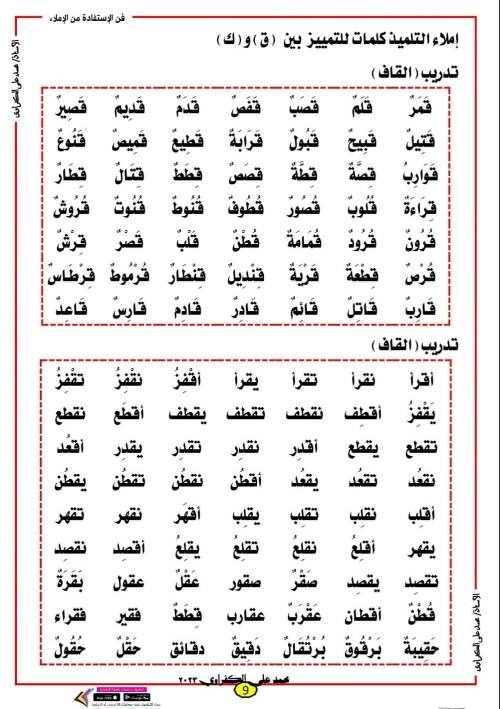 فن الإستفادة من الإملاء
الأستاذ/ محمد على الكفراوى
إملاء التلميذ كلمات للتمييز بين (ق) و(ك)
تدريب (القاف)
قَمَرٌ قَلَمٌ قَصَبٌ قَفَصٌ قَدَمٌ قَدِيمٌ قَصِيرٌ
قَتِيلٌ قَبِيحٌ قَبُولٌ قَرَابَةٌ قَطِيعٌ قَمِيصٌ قَنُوعٌ
قَوَارِبُ قِصَّةٌ قِطَّةٌ قِصَصٌ قِطَطٌ قِتَالٌ قِطَارٌ
قِرَاءَةٌ قُلُوبٌ قُصُورٌ قُطُوفٌ قُنُوطٌ قُنُوتٌ قُرُوشٌ
قُرُونٌ قُرُودٌ قُمَامَةٌ قُطْنٌ قَلْبٌ قَصْرٌ قِرْشٌ
قُرْصٌ قِطْعَةٌ قَرْيَةٌ قِنْدِيلٌ قِنْطَارٌ قُرْمُوطٌ قِرْطَاسٌ
قَارِبٌ قَاتِلٌ قَائِمٌ قَادِرٌ قَادِمٌ قَارِسٌ قَاعِدٌ
تدريب (القاف)
أقرأ نقرأ تقرأ يقرأ أقْفِزُ نقْفِزُ تقْفِزُ
يَقْفِزُ أقطِف نقطف تقطف يقطف أقطَع نقطع
تقطع يقطع أقدِر نقدر تقدر يقدر أقعُد
نقعُد تقعُد يقعُد أقطُن نقطُن تقطُن يقطُن
أقلِب نقلِب تقلِب يقلِب أقهَر نقهر تقهر
يقهر أقلِعُ نقلِعُ تقلِعُ يقلِعُ أقصد نقصد
تقصد يقصد صَقْرٌ صقور عَقْلٌ عقول بَقَرَةٌ
قُطْنٌ أقطان عَقْرَبٌ عقارب قِطَطٌ فقير فقراء
حَقِيبَةٌ بَرْقُوقٌ بُرْتُقَالٌ دَقِيقٌ دقائق حَقْلٌ حُقُولٌ
الأستاذ/ محمد على الكفراوى
محمد على الكفراوى ٢٠٢٣
9